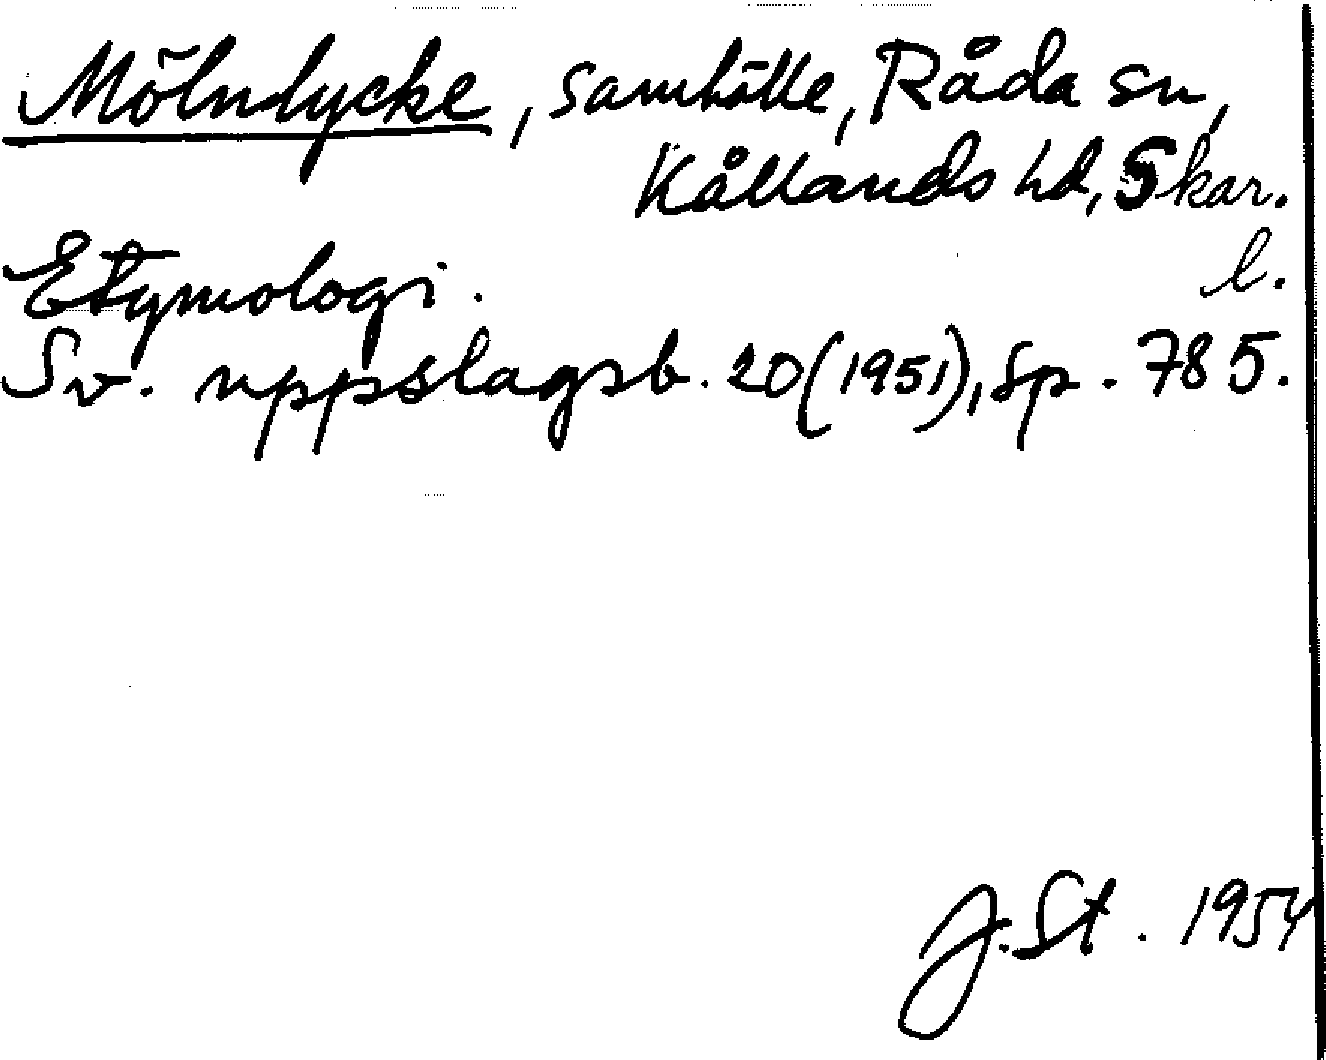 Mölnlycke, samhälle, Råda sn,
Kållands hd, Skar.
l.
Etymologi.
Sv. uppslagsb. 20 (1951), sp. 785.
J. St. 1954